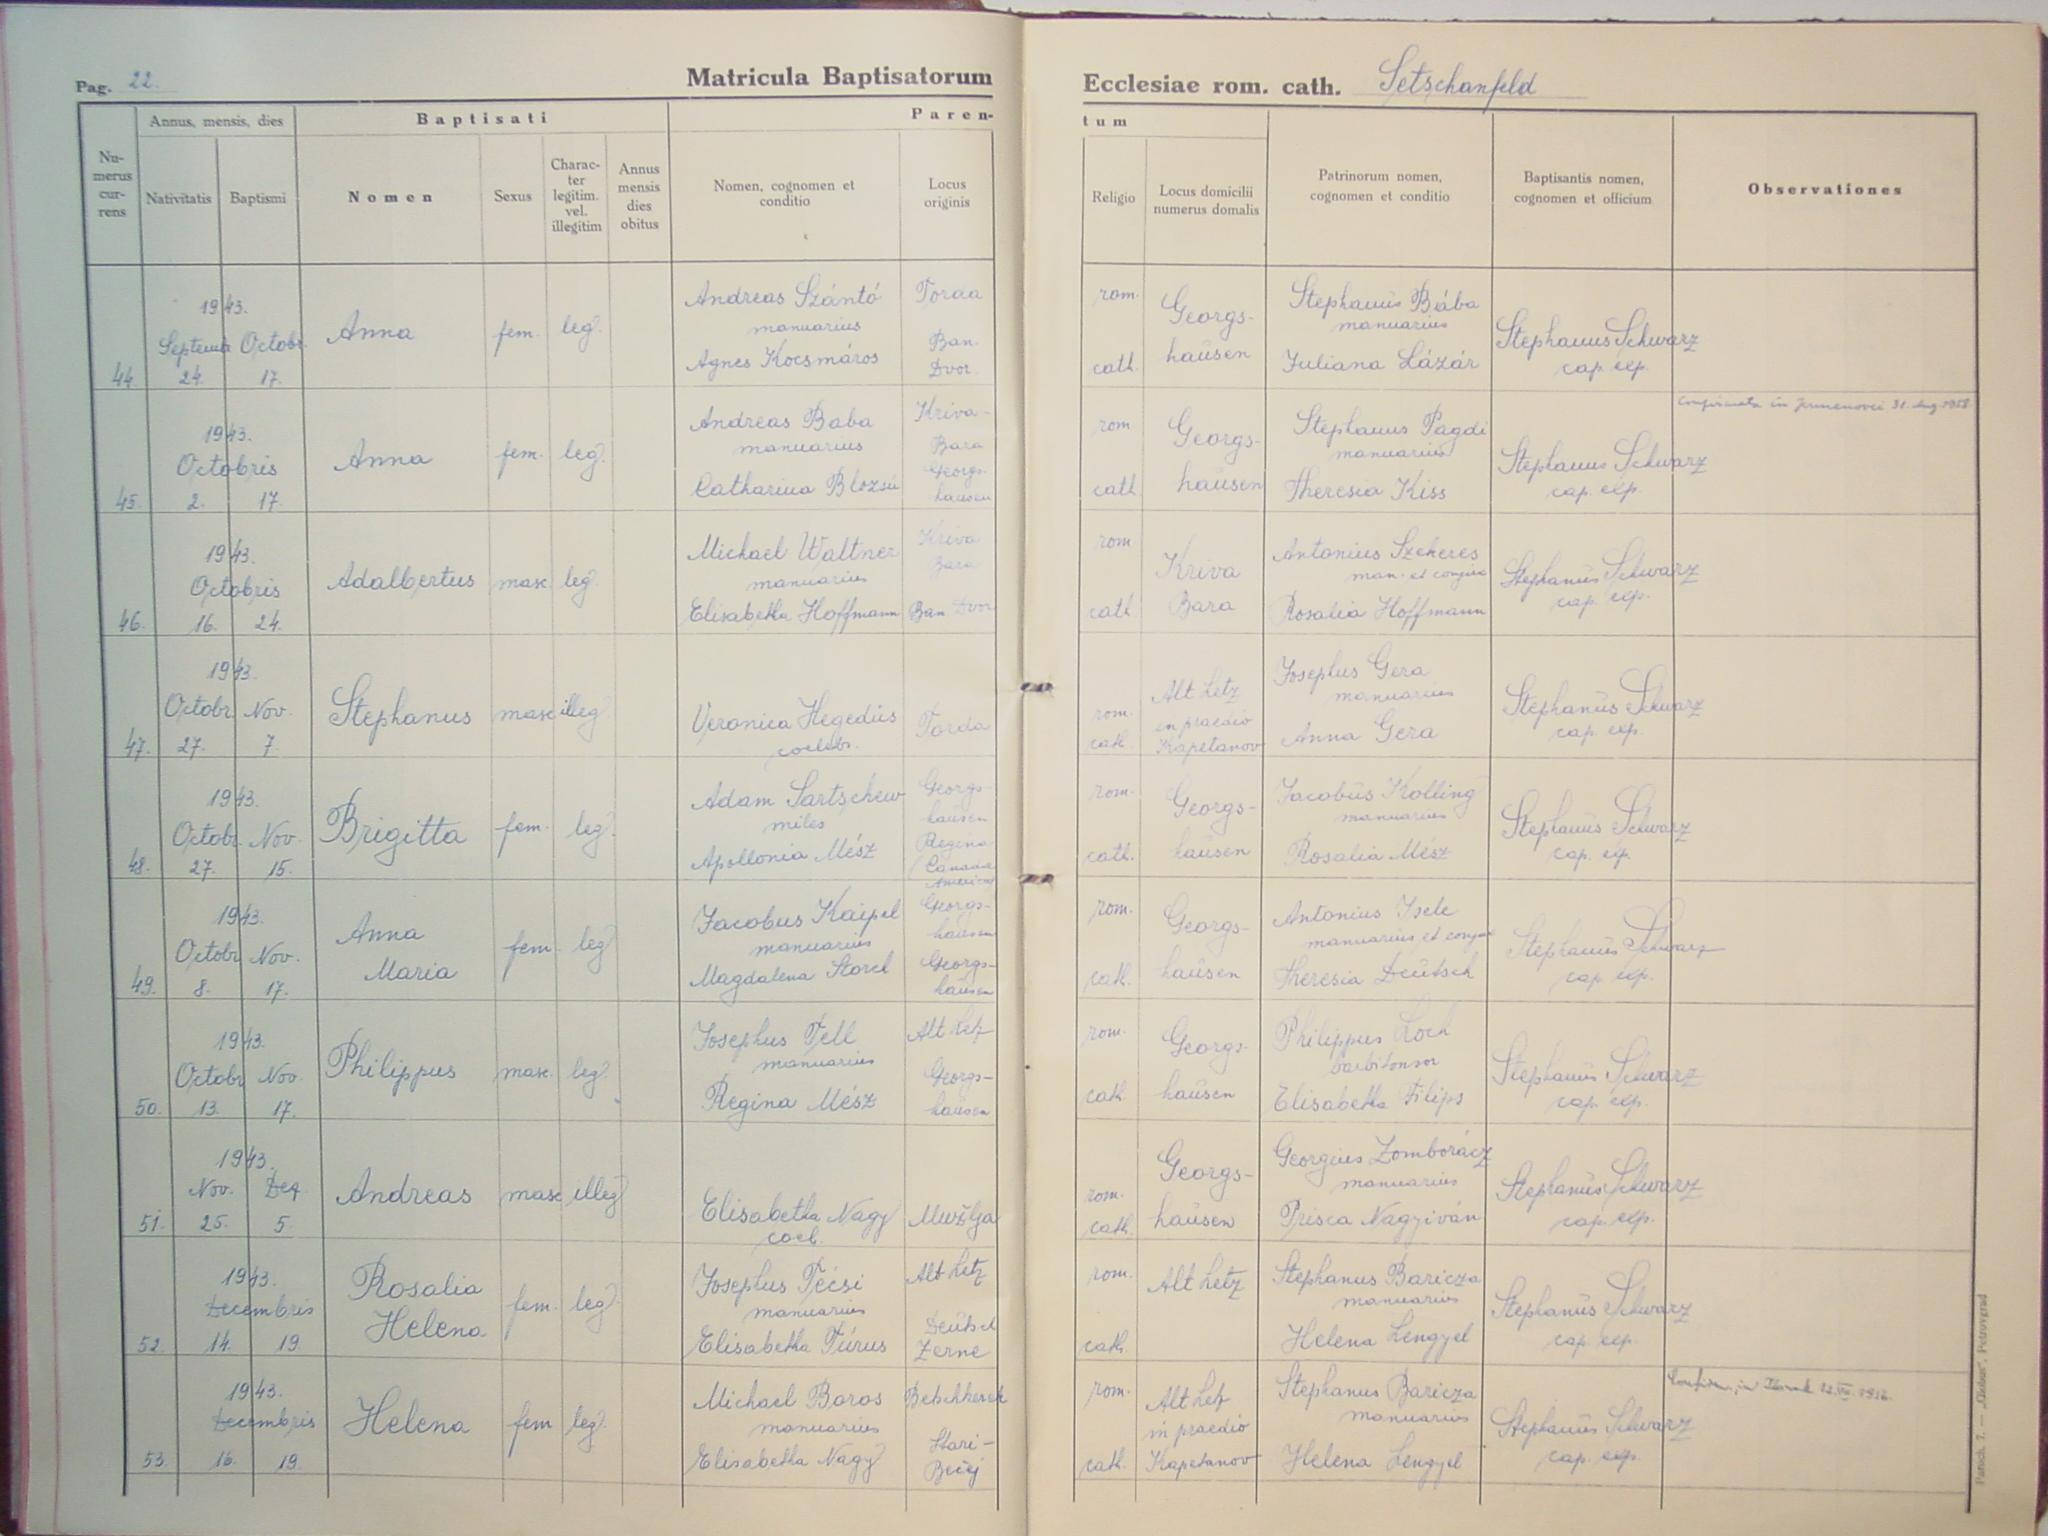 Pag. 22.
Matricula Baptisatorum
Ecclesiae rom. cath. Setschanfeld
Numerus currens
Annus, mensis, dies
Nativitatis
Baptismi
Baptisati
Nomen
Sexus
Charac-
ter
legitim.
vel.
illegitim
Annus
mensis
dies
obitus
Paren-
tum
Nomen, cognomen et
conditio
Locus
originis
Religio
Locus domicilii
numerus domalis
Patrinorum nomen,
cognomen et conditio
Baptisantis nomen,
cognomen et officium
Observationes
44. 1943. Septemb 24. Octobr. 17. Anna fem. leg.
Andreas Szántó Torda
manuarius
Agnes Kocsmáros Ban. Dvor.
rom. cath. Georgs-
hausen
Stephanus Bába
manuarius
Juliana Lázár
Stephanus Schwarz
cap. exp.
45. 1943. Octobris 2. 17. Anna fem. leg.
Andreas Baba Kriva-
Bara
manuarius
Catharina Blozsú Georgs-
hausen
rom cath Georgs-
hausen
Stephanus Pagdi
manuarius
Theresia Kiss
Stephanus Schwarz
cap. exp.
in Jermenovci 31. Aug. 1958
46. 1943. Octobris 16. 24. Adalbertus masc. leg.
Michael Waltner Kriva
Bara
manuarius
Elisabetha Hoffmann Ban Dvor
rom cath. Kriva
Bara
Antonius Szekeres
man. et
Rosalia Hoffmann
Stephanus Schwarz
cap. exp.
47. 1943. Octobr. 27. Nov. 7. Stephanus masc illeg.
Veronica Hegedüs Torda
coelebs.
rom. cath. Alt Letz
in praedio
Kapetanov
Josephus Gera
manuarius
Anna Gera
Stephanus Schwarz
cap. exp.
48. 1943. Octobr. 27. Nov. 15. Brigitta fem. leg.
Adam Sartschew Georgs-
hausen
miles
Apollonia Mész Regina
Canada
America
rom. cath. Georgs-
hausen
Jacobus Kolling
manuarius
Rosalia Mész
Stephanus Schwarz
cap. exp.
49. 1943. Octobr 8. Nov. 17. Anna
Maria fem. leg.
Jacobus Kaipel Georgs-
hausen
manuarius
Magdalena Storch Georgs-
hausen
rom. cath. Georgs-
hausen
Antonius Isele
manuarius et
Theresia Deutsch
Stephanus Schwarz
cap. exp.
50. 1943. Octobr 13. Nov. 17. Philippus masc. leg.
Josephus Fell Alt Letz
manuarius
Regina Mész Georgs-
hausen
rom. cath. Georgs-
hausen
Philippus Loch
barbitonsor
Elisabetha Filips
Stephanus Schwarz
cap. exp.
51. 1943. Nov. 25. Dec. 5. Andreas masc illeg.
Elisabetha Nagy Mužlja
coel.
rom. cath. Georgs-
hausen
Georgius Zomborácz
manuarius
Prisca Nagyiván
Stephanus Schwarz
cap. exp.
52. 1943. Decembris 14. 19. Rosalia
Helena fem. leg.
Josephus Pécsi Alt Letz
manuarius
Elisabetha Túrus Deutsch
Zerne
rom. cath. Alt Letz
Stephanus Baricza
manuarius
Helena Lengyel
Stephanus Schwarz
cap. exp.
53. 1943. Decembris 16. 19. Helena fem leg.
Michael Boros Betschkerek
manuarius
Elisabetha Nagy Stari-
Bečej
rom. cath. Alt Letz
in praedio
Kapetanov
Stephanus Baricza
manuarius
Helena Lengyel
Stephanus Schwarz
cap. exp.
"Globus", Petrovgrad